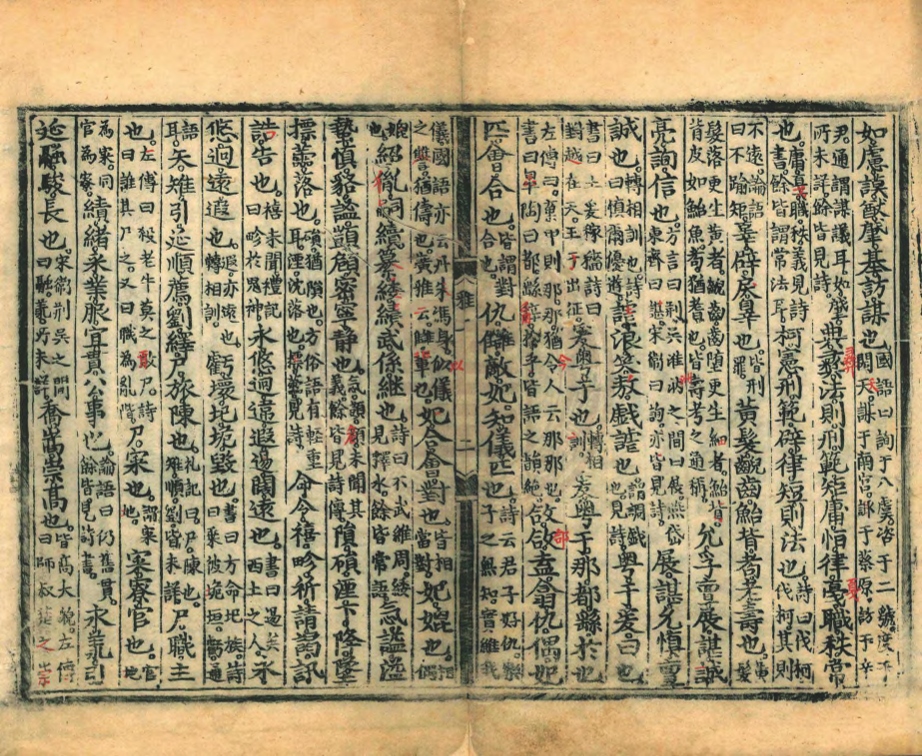 如慮謨猷肇基訪謀也國語曰詢于八虞咨于二虢度于閎夭謀于南宮諏于蔡原訪于辛
尹通謂謀議耳如肇所未詳餘皆見詩典彝法則刑範矩庸恒律戛職秩常
也庸戛職秩義見詩書餘皆謂常法耳柯憲刑範辟律矩則法也詩曰伐柯伐柯其則
不遠論語曰不踰矩辜辟戾辠也皆刑罪黃髮齯齒鮐背耇老壽也黃髮
髮落更生黃者齯齒齒墮更生細者鮐背背皮如鮐魚耇猶耆也皆壽考之通稱允孚亶展諶誠
亮詢信也方言曰荊吳淮汭之間曰展燕岱東齊曰諶宋衛曰詢亦皆見詩展諶允慎亶
誠也轉相訓也詩曰慎爾優遊謔浪笑敖戲謔也謂調戲也見詩粵于爰曰也
書曰土爰稼穡詩曰對越在天王于出征爰粵于也轉相訓爰粵于那都繇於也
左傳曰棄甲則那那猶今人云那那也書曰皐陶曰都繇辭於乎皆語之韻絕敆郃盍翕仇偶妃
匹會合也皆謂對合也仇讎敵妃知儀匹也詩云君子好仇樂子之無知實維我
儀國語亦云丹朱馮身以儀之讎猶儔也廣雅云讎輩也妃合會對也皆相當對妃媲也相偶
媲也紹胤嗣續纂緌績武係繼也詩曰下武維周緌見釋水餘皆常語忥謐溢
蟄慎貉謐顗頠密寧靜也忥顗頠未聞其義餘皆見詩傳隕磒湮下降墜
摽蘦落也磒猶隕也方俗語有輕重耳湮沈落也摽蘦見詩命令禧畛祈請謁訊
誥告也禧未聞禮記曰畛於鬼神永悠迥遠遐逷闊遠也書曰逷矣西土之人永
悠迥遠遐也遐亦遠也轉相訓虧壞圮垝毀也書曰方命圮族詩曰乘彼垝垣虧通
語耳矢雉引延順薦劉繹尸旅陳也禮記曰尸陳也雉順劉皆未詳尸職主
也左傳曰殺老牛莫之敢尸詩曰誰其尸之又曰職為亂階尸寀也謂寀地寀寮官也官地
為寀同官為寮績緒采業服宜貫公事也論語曰仍舊貫餘皆見詩書永羕引
延融駿長也宋衛荊吳之間曰融羕所未詳喬嵩崇高也皆高大貌左傳曰師叔楚之崇